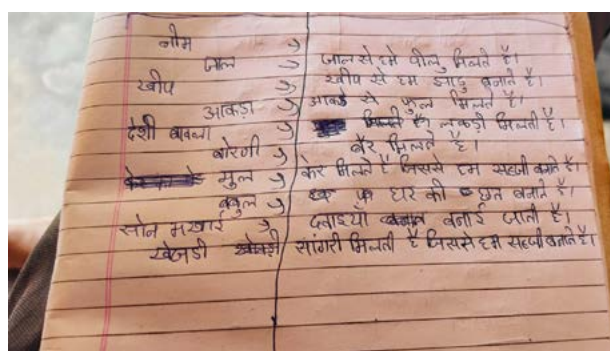 नीम
जाल → जाल से हमे पीलु मिलते है।
खीप → खीप से हम झाडु बनाते है।
आकडा → आकडे से फुल मिलते है।
देशी बावला → लकड़ी मिलती है।
बोरणी → बैर मिलते है।
मुल → केर मिलते है जिससे हम सब्जी बनाते है।
बबुल → घर की छत बनाते है।
सोन मखाई → दवाइयाँ बनाई जाती है।
खेजडी सांगरी मिलती है जिससे हम सब्जी बनाते है।